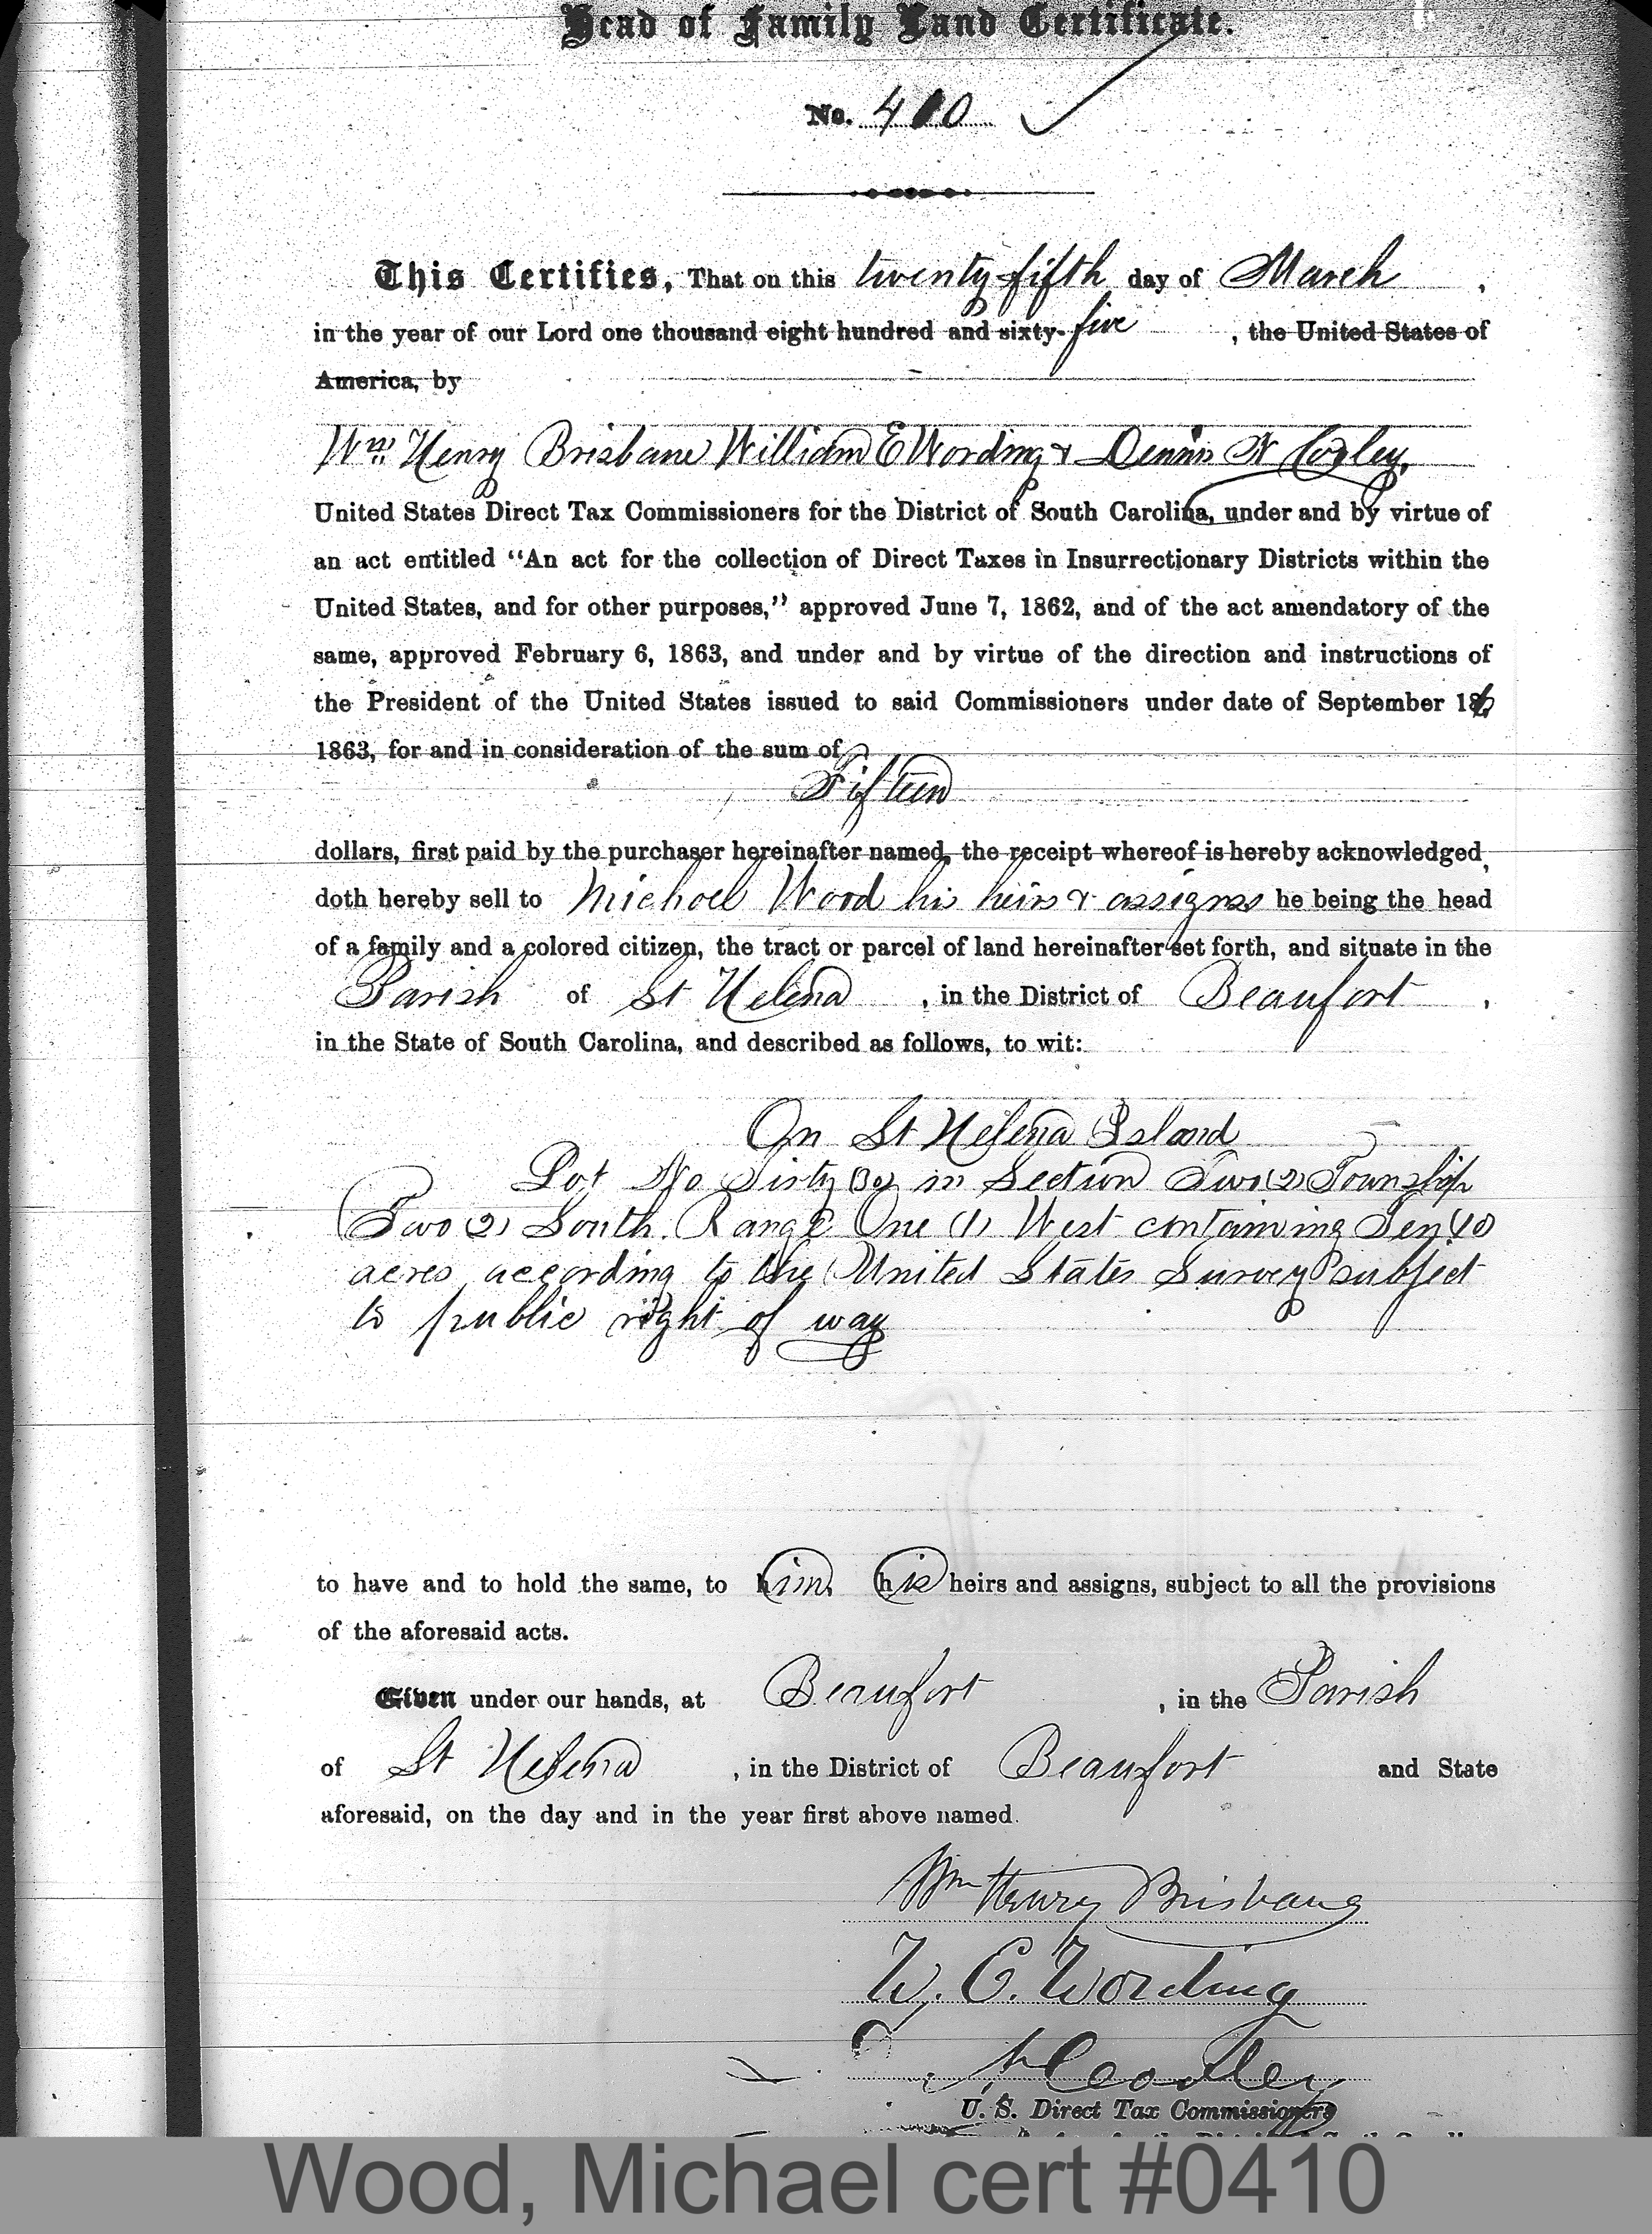 Head of Family Land Certificate.
No. 410
This Certifies, That on this twenty-fifth day of March,
in the year of our Lord one thousand eight hundred and sixty-five, the United States of
America, by
Wm. Henry Brisbane William E Wording & Dennis N Cooley,
United States Direct Tax Commissioners for the District of South Carolina, under and by virtue of
an act entitled “An act for the collection of Direct Taxes in Insurrectionary Districts within the
United States, and for other purposes,” approved June 7, 1862, and of the act amendatory of the
same, approved February 6, 1863, and under and by virtue of the direction and instructions of
the President of the United States issued to said Commissioners under date of September 16,
1863, for and in consideration of the sum of
Fifteen
dollars, first paid by the purchaser hereinafter named, the receipt whereof is hereby acknowledged,
doth hereby sell to Michael Wood his heirs & assigns he being the head
of a family and a colored citizen, the tract or parcel of land hereinafter set forth, and situate in the
Parish of St Helena, in the District of Beaufort,
in the State of South Carolina, and described as follows, to wit:
On St Helena Island
Lot No in Section Two (2) Township
Two (2) South. Range One (1) West containing Ten (10
acres according to the United States Survey subject
to public right of way
to have and to hold the same, to him, his heirs and assigns, subject to all the provisions
of the aforesaid acts.
Given under our hands, at Beaufort, in the Parish
of St Helena, in the District of Beaufort and State
aforesaid, on the day and in the year first above named.
Wm Henry Brisbane
W. E. Wording
D. N. Cooley
U. S. Direct Tax Commissioners
Wood, Michael cert #0410